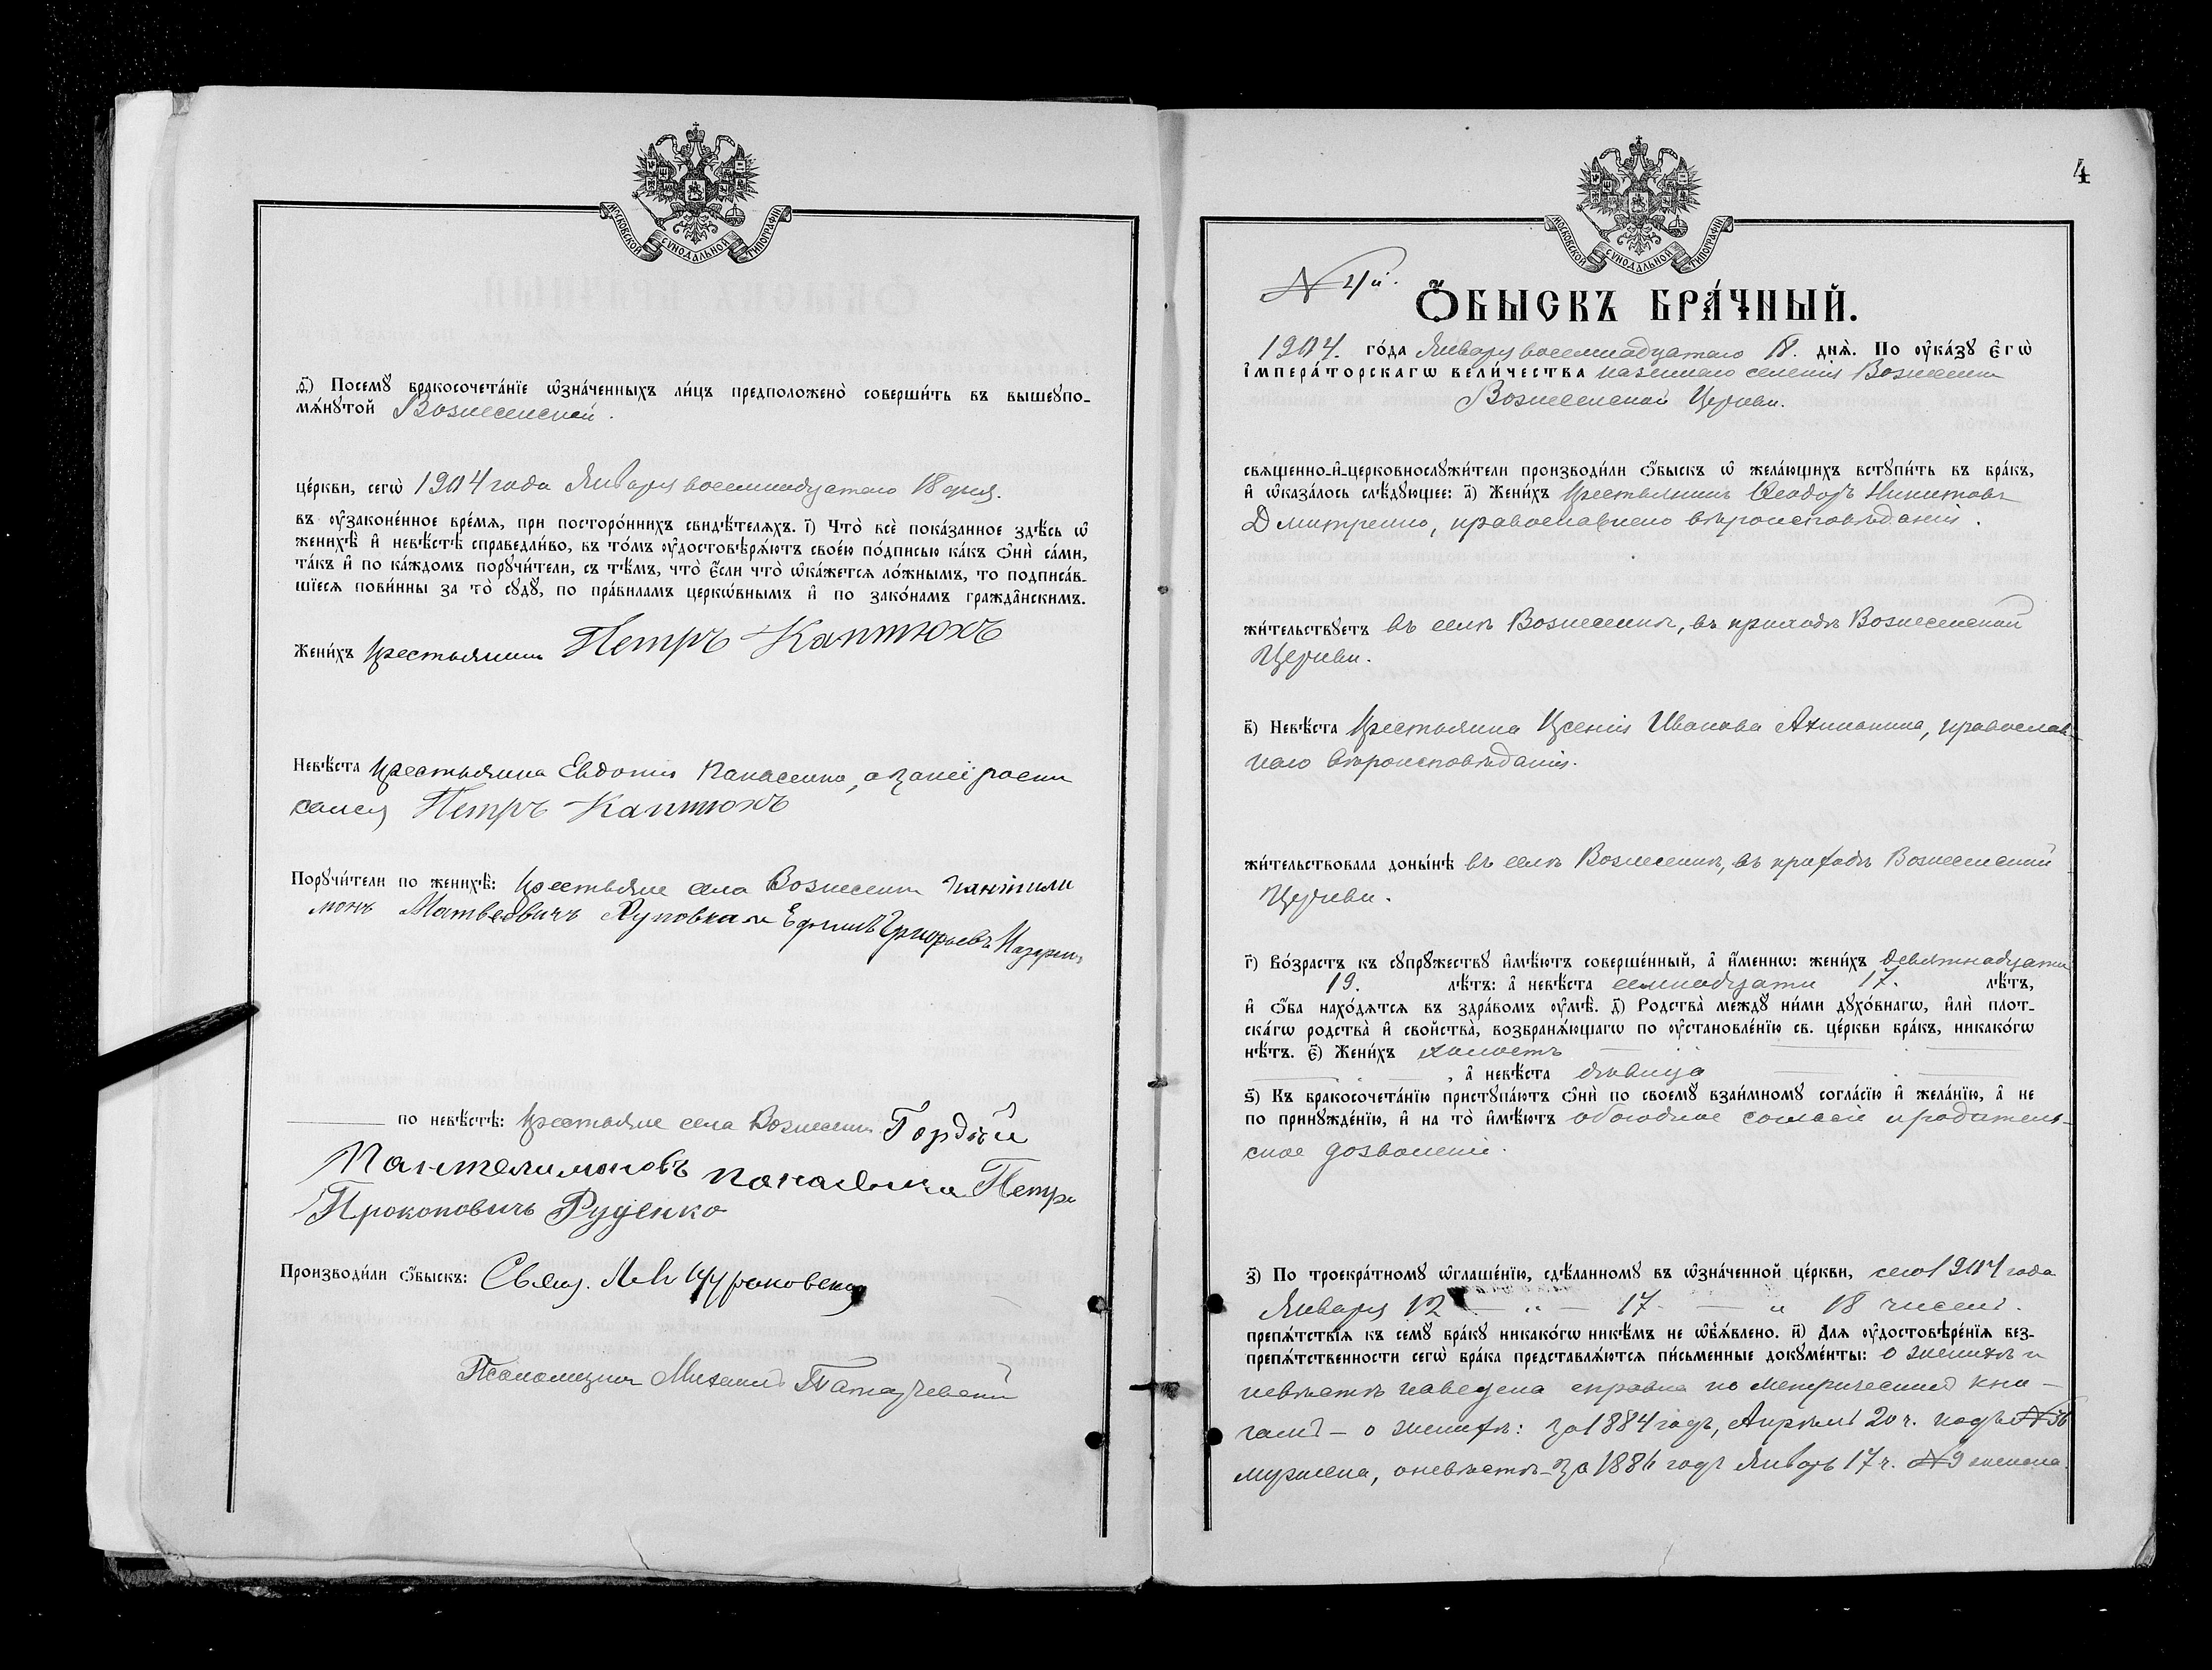 МОСКОВСКОЙ СѴНОДАЛЬНОЙ ТИПОГРАФІИ.
ѳ҃) Посемꙋ̀ бракосочета́нїе ѡ҆зна́ченныхъ ли́цъ предположено̀ соверши́ть въ вышеꙋпо-
мѧ́нꙋтой Вознесенской.
це́ркви, сегѡ̀ 1904 года Января восемнадцатаго 18 дня.
въ ᲂу҆зако́ненное вре́мѧ, при посторо́ннихъ свидѣ́телѧхъ. і҃) Что̀ всѐ пока́занное здѣ́сь ѡ҆
женихѣ̀ и҆ невѣ́стѣ справедли́во, въ то́мъ ᲂу҆достовѣрѧ́ютъ свое́ю по́дписью ка́къ ѻ҆нѝ са́ми,
та́къ и҆ по ка́ждомъ порꙋчи́тели, съ тѣ́мъ, что̀ є҆́сли что̀ ѡ҆ка́жетсѧ ло́жнымъ, то подписа́в-
шїесѧ пови́нны за то̀ сꙋдꙋ̀, по пра́виламъ церкѡ́внымъ и҆ по зако́намъ гражда̑нскимъ.
Жени́хъ крестьянинъ Петръ Каптюхъ
Невѣ́ста крестьянка Евдокія Панасенко, а за неё росписался
Петръ Каптюхъ
Порꙋчи́тели по женихѣ̀: Крестьяне села Вознесенки Пантили
монъ Матвеовичъ Ефимъ Григорьевъ
по невѣ́стѣ: крестьяне села Вознесенки Гордѣй
Пантелимоновъ Петръ
Прокоповичъ Руденко
Производи́ли ѻ҆́быскъ: Свящ.
Псаломщикъ Михаилъ
4
МОСКОВСКОЙ СѴНОДАЛЬНОЙ ТИПОГРАФІИ.
N 4й.
Ѻ҆́БЫСКЪ БРА́ЧНЫЙ.
1904. го́да Января восемнадцатаго 18. днѧ̀. По ᲂу҆ка́зꙋ є҆гѡ̀
і҆мпера́торскагѡ вели́чества казеннаго селенія Вознесенки
Вознесенской Церкви.
свѧщенно-и҆-церковнослꙋжи́тели производи́ли ѻ҆́быскъ ѡ҆ жела́ющихъ встꙋпи́ть въ бра́къ,
и҆ ѡ҆каза́лось слѣ́дꙋющее: а҃) Жени́хъ крестьянинъ Ѳеодоръ Никитовъ
Дмитренко, православнаго вѣроисповѣданія.
жи́тельствꙋетъ въ селѣ Вознесенкѣ, въ приходѣ Вознесенской
Церкви.
в҃) Невѣ́ста крестьянка Ксенія Иванова православ-
наго вѣроисповѣданія.
жи́тельствовала доны́нѣ въ селѣ Вознесенкѣ, въ приходѣ Вознесенской
Церкви.
г҃) Во́зрастъ къ сꙋпрꙋ́жествꙋ и҆мѣ́ютъ соверше́нный, а҆ и҆́меннѡ: жени́хъ девятнадцати
19. лѣ́тъ: а҆ невѣ́ста семнадцати 17. лѣ́тъ,
и҆ ѻ҆́ба нахо́дѧтсѧ въ здра́вомъ ᲂу҆мѣ̀. д҃) Родства̀ междꙋ̀ ни́ми дꙋхо́внагѡ, и҆лѝ плот-
ска́гѡ родства̀ и҆ сво́йства̀, возбранѧ́ющагѡ по ᲂу҆становле́нїю св. це́ркви бра́къ, никако́гѡ
нѣ́тъ. є҃) Жени́хъ холостъ
, а҆ невѣ́ста дѣвица
ѕ҃) Къ бракосочета́нїю пристꙋпа́ютъ ѻ҆нѝ по своемꙋ̀ взаи́мномꙋ согла́сїю и҆ жела́нїю, а҆ не
по принꙋжде́нїю, и҆ на то̀ и҆мѣ́ютъ обоюдное согласіе и родитель-
ское дозволеніе.
з҃) По троекра́тномꙋ ѡ҆глаше́нїю, сдѣ́ланномꙋ въ ѡ҆зна́ченной це́ркви, сего 1904 года
Января 12 — „ — 17 — и 18 чиселъ.
препѧ́тствїѧ къ семꙋ̀ бра́кꙋ никако́гѡ никѣ́мъ не ѡ҆б̾ѧ́влено. и҃) Длѧ ᲂу҆достовѣре́нїѧ без-
препѧ́тственности сегѡ̀ бра́ка представлѧ́ютсѧ пи́сьменные докꙋме́нты: о женихѣ и
невѣстѣ наведена справка по метрическимъ кни-
гамъ – о женихѣ: за 1884 годъ, Апрѣль 20 ч. подъ N 56
мужска, о невѣстѣ – за 1886 годъ Январь 17 ч. N 9 женска.